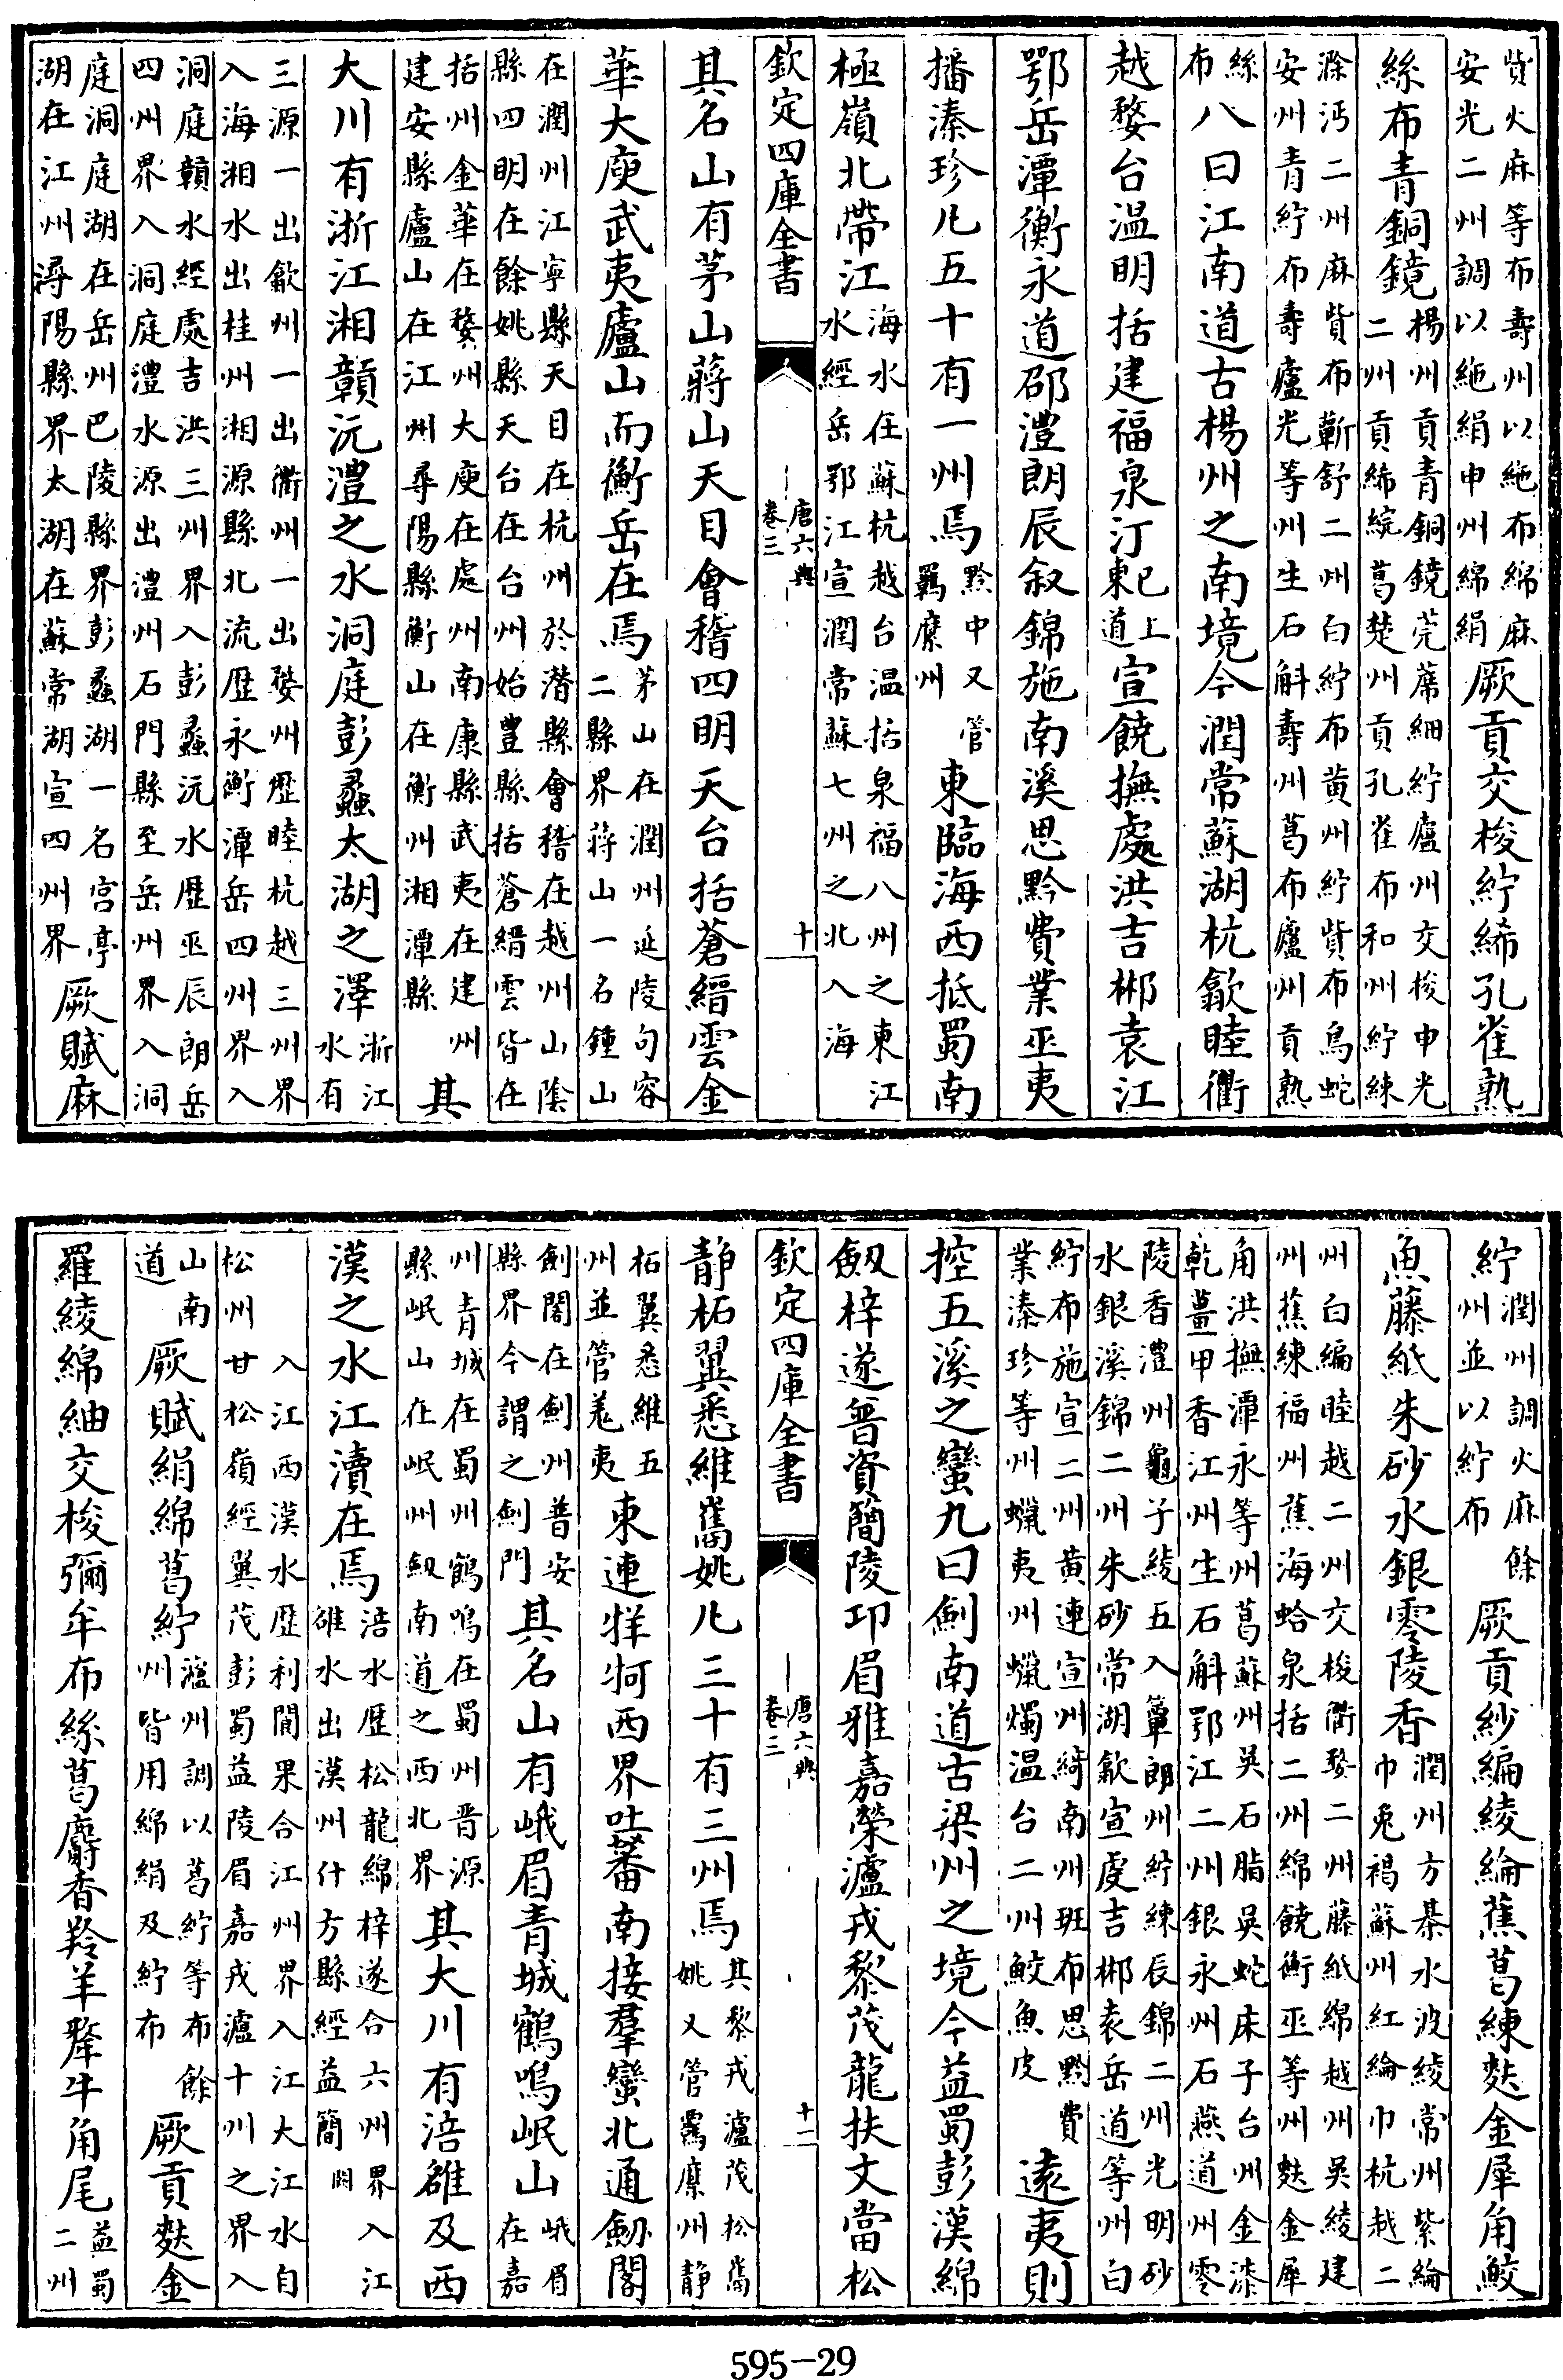 貲火麻等布壽州以絁布綿麻安光二州調以絁絹申州綿絹厥貢交梭紵絺孔雀熟
絲布青銅鏡楊州貢青銅鏡莞蓆細紵廬州交梭申光二州貢絺綄葛楚州貢孔雀布和州紵練
滁沔二州麻貲布蘄舒二州白紵布黄州紵貲布烏蛇安州青紵布壽廬光等州生石斛壽州葛布廬州貢熟
絲布八曰江南道古楊州之南境今潤常蘇湖杭歙睦衢
越婺台温明括建福泉汀已上東道宣饒撫處洪吉郴袁江
鄂岳潭衡永道邵澧朗辰叙錦施南溪思黔費業巫夷
播溱珍凡五十有一州焉黔中又管羈縻州東臨海西抵蜀南
極嶺北帶江海水在蘇杭越台温括泉福八州之東江水經岳鄂江宣潤常蘇七州之北入海
欽定四庫全書 唐六典卷三 十
其名山有茅山蔣山天目會稽四明天台括蒼縉雲金
華大庾武夷廬山而衡岳在焉茅山在潤州延陵句容二縣界蔣山一名鍾山
在潤州江寧縣天目在杭州於潛縣會稽在越州山陰縣四明在餘姚縣天台在台州始豐縣括蒼縉雲皆在
括州金華在婺州大庾在處州南康縣武夷在建州建安縣廬山在江州尋陽縣衡山在衡州湘潭縣其
大川有浙江湘贛沅澧之水洞庭彭蠡太湖之澤浙江水有
三源一出歙州一出衢州一出婺州歷睦杭越三州界入海湘水出桂州湘源縣北流歷永衡潭岳四州界入
洞庭贛水經處吉洪三州界入彭蠡沅水歷巫辰朗岳四州界入洞庭澧水源出澧州石門縣至岳州界入洞
庭洞庭湖在岳州巴陵縣界彭蠡湖一名宮亭湖在江州潯陽縣界太湖在蘇常湖宣四州界厥賦麻
紵潤州調火麻餘州並以紵布厥貢紗編綾綸蕉葛練麩金犀角鮫
魚藤紙朱砂水銀零陵香潤州方棊水波綾常州紫綸巾兎褐蘇州紅綸巾杭越二
州白編睦越二州交梭衢婺二州藤紙綿越州吳綾建州蕉練福州蕉海蛤泉括二州綿饒衡巫等州麩金犀
角洪撫潭永等州葛蘇州吳石脂吳蛇床子台州金漆乾薑甲香江州生石斛鄂江二州銀永州石燕道州零
陵香澧州龜子綾五入簟朗州紵練辰錦二州光明砂水銀溪錦二州朱砂常湖歙宣虔吉郴袁岳道等州白
紵布施宣二州黄連宣州綺南州班布思黔費業溱珍等州蠟夷州蠟燭温台二州鮫魚皮遠夷則
控五溪之蠻九曰劍南道古梁州之境今益蜀彭漢綿
劔梓遂普資簡陵邛眉雅嘉榮瀘戎黎茂龍扶文當松
欽定四庫全書 唐六典卷三 十一
静柘翼悉維嶲姚凡三十有三州焉其黎戎瀘茂松嶲姚又管羈縻州静
柘翼悉維五州並管羌夷東連牂牁西界吐蕃南接羣蠻北通劔閣
劍閣在劍州普安縣界今謂之劍門其名山有峨眉青城鶴鳴岷山峨眉在嘉
州青城在蜀州鶴鳴在蜀州晋源縣岷山在岷州劔南道之西北界其大川有涪雒及西
漢之水江瀆在焉涪水歷松龍綿梓遂合六州界入江雒水出漢州什方縣經益簡闕
入江西漢水歷利閬果合江州界入江大江水自松州甘松嶺經翼茂彭蜀益陵眉嘉戎瀘十州之界入
山南道厥賦絹綿葛紵瀘州調以葛紵等布餘州皆用綿絹及紵布厥貢麩金
羅綾綿紬交梭彌牟布絲葛麝香羚羊犛牛角尾益蜀二州
595-29